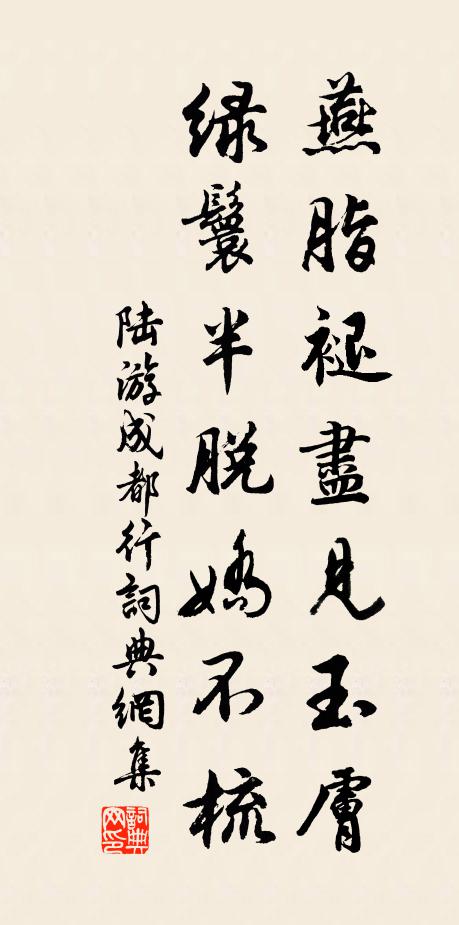 燕脂褪盡見玉膚
綠鬟半脫嬌不梳
陆游成都行詞典網集
詞典网印